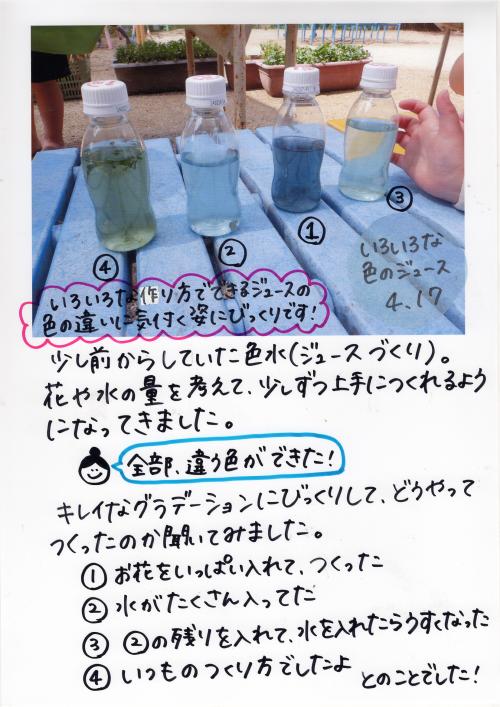 ④
②
①
③
いろいろな
色のジュース
4.17
いろいろな作り方でできるジュースの
色の違いに気付く姿にびっくりです!
少し前からしていた色水(ジュースづくり)。
花や水の量を考えて、少しずつ上手につくれるよう
になってきました。
全部、違う色ができた!
キレイなグラデーションにびっくりして、どうやって
つくったのか聞いてみました。
① お花をいっぱい入れて、つくった
② 水がたくさん入ってた
③ ②の残りを入れて、水を入れたらうすくなった
④ いつものつくり方でしたよ
とのことでした!